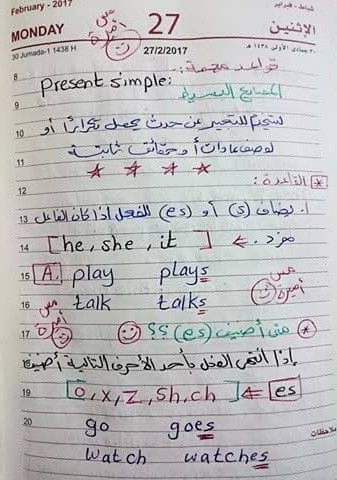 February - 2017
شباط - فبراير
MONDAY
27
الإثنين
30 Jumada-1 1438 H
27/2/2017
٣٠ جمادى الأولى ١٤٣٨ هـ
مس أميرة
8
قواعد مهمة:
Present simple:
المضارع البسيط
9
10
تستخدم للتعبير عن حدث يحصل تكرارًا أو
11
لوصف عادات أو حقائق ثابتة
12
* القاعدة:
13
١. يضاف (s) أو (es) للفعل اذا كان الفاعل
14
[he, she, it] ← مفرد.
15
A. play plays
مس أميرة
16
talk talks
مس أميرة
17
* متى أضيف (es) ؟؟
إذا انتهى الفعل بأحد الأحرف التالية أضيف
19
[o, x, z, sh, ch] ← es
20
go goes
ملاحظات
watch watches